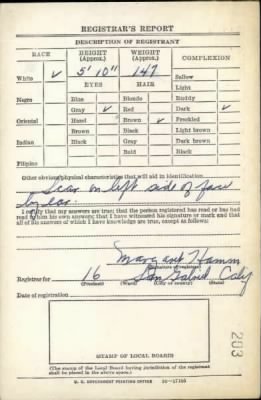 REGISTRAR'S REPORT
DESCRIPTION OF REGISTRANT
RACE HEIGHT (Approx.) WEIGHT (Approx.) COMPLEXION
White ✓ 5' 10" 147 Sallow
EYES HAIR Light
Negro Blue Blonde Ruddy
Gray ✓ Red Dark ✓
Oriental Hazel Brown ✓ Freckled
Brown Black Light brown
Indian Black Gray Dark brown
Bald Black
Filipino
Other obvious physical characteristics that will aid in identification
Scar on left side of face
by ear.
I certify that my answers are true; that the person registered has read or has had
read to him his own answers; that I have witnessed his signature or mark and that
all of his answers of which I have knowledge are true, except as follows:
Margaret Hamm
(Signature of registrar)
Registrar for 16 San Gabriel Calif
(Precinct) (Ward) (City or county) (State)
Date of registration
203
STAMP OF LOCAL BOARD
(The stamp of the Local Board having jurisdiction of the registrant
shall be placed in the above space.)
U. S. GOVERNMENT PRINTING OFFICE 16—17105